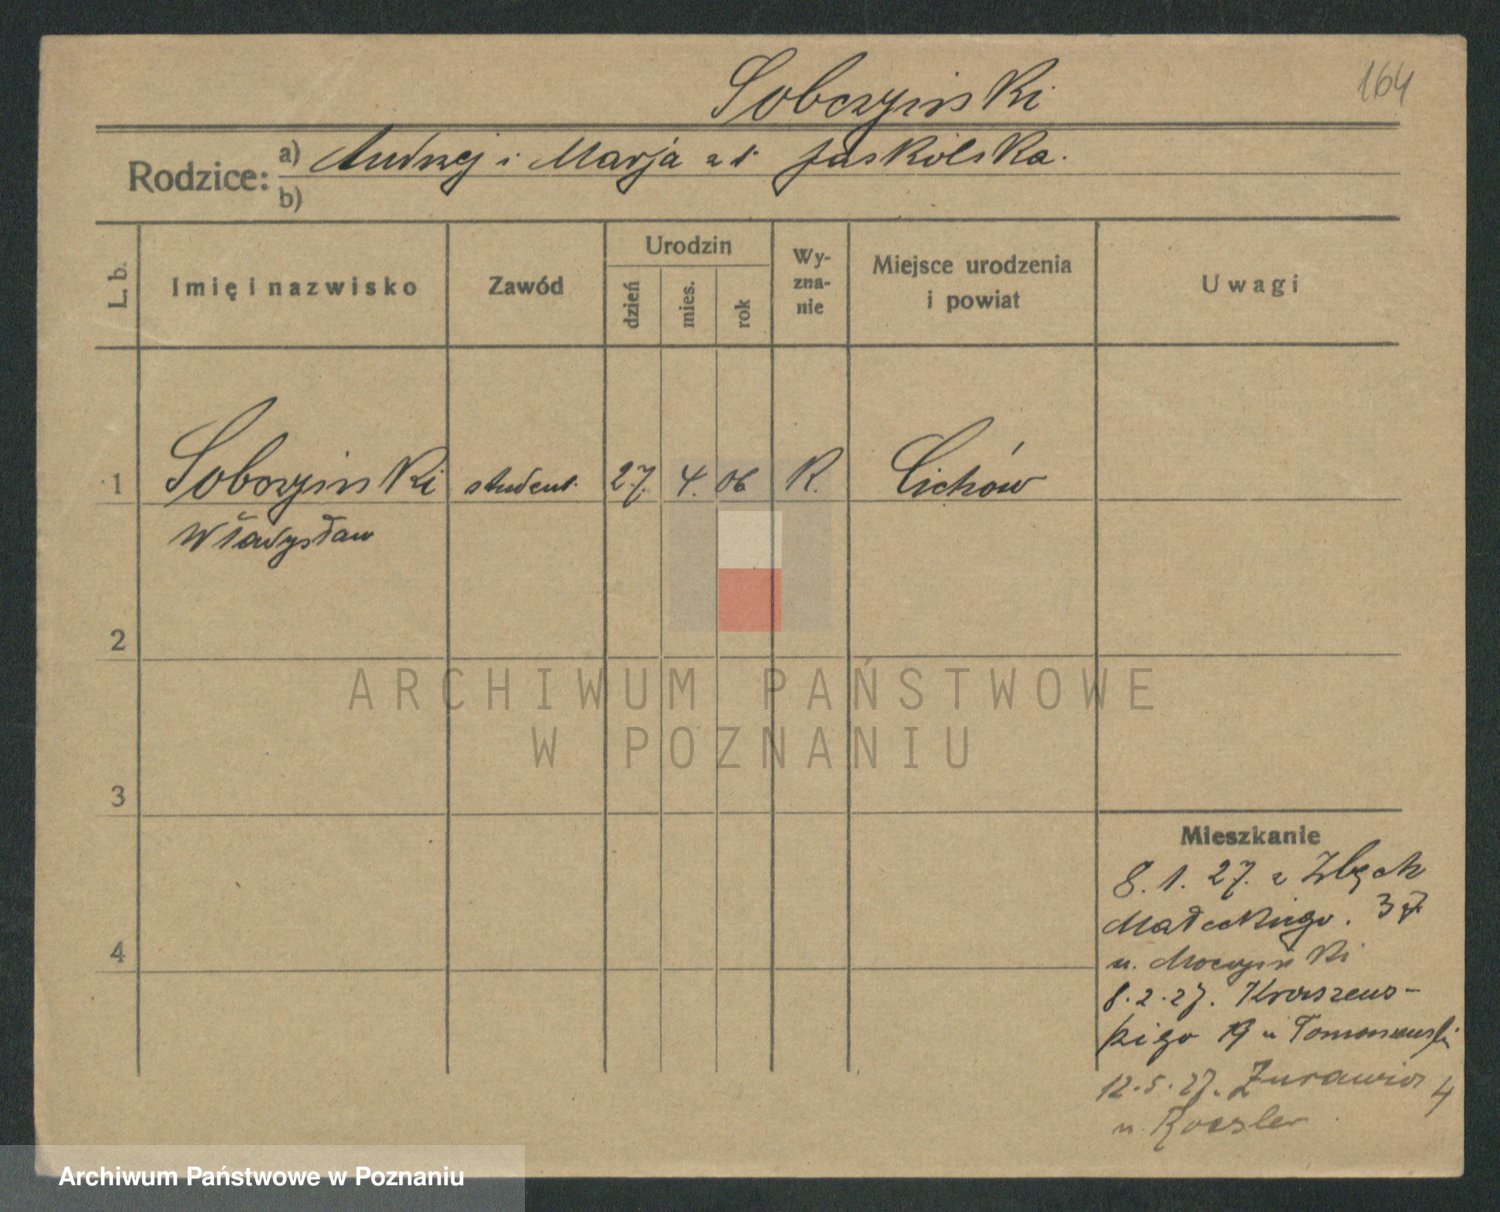 Sobczyński
164
Rodzice: a) Andrzej i Marja z d. Jaskólska.
b)
L. b.
Imię i nazwisko
Zawód
Urodzin
dzień
mies.
rok
Wy-
zna-
nie
Miejsce urodzenia
i powiat
Uwagi
1 Sobczyński student. 27. 4. 06 R. Cichów
Władysław
2
ARCHIWUM PAŃSTWOWE
W POZNANIU
3
Mieszkanie
8. 1. 27. z
Małeckiego. 37
u. Moczyński
4
8.2.27. Kraszews-
kiego 19 u Tomaszewski
12.5.27. Żurawia 4
u. Roesler
Archiwum Państwowe w Poznaniu